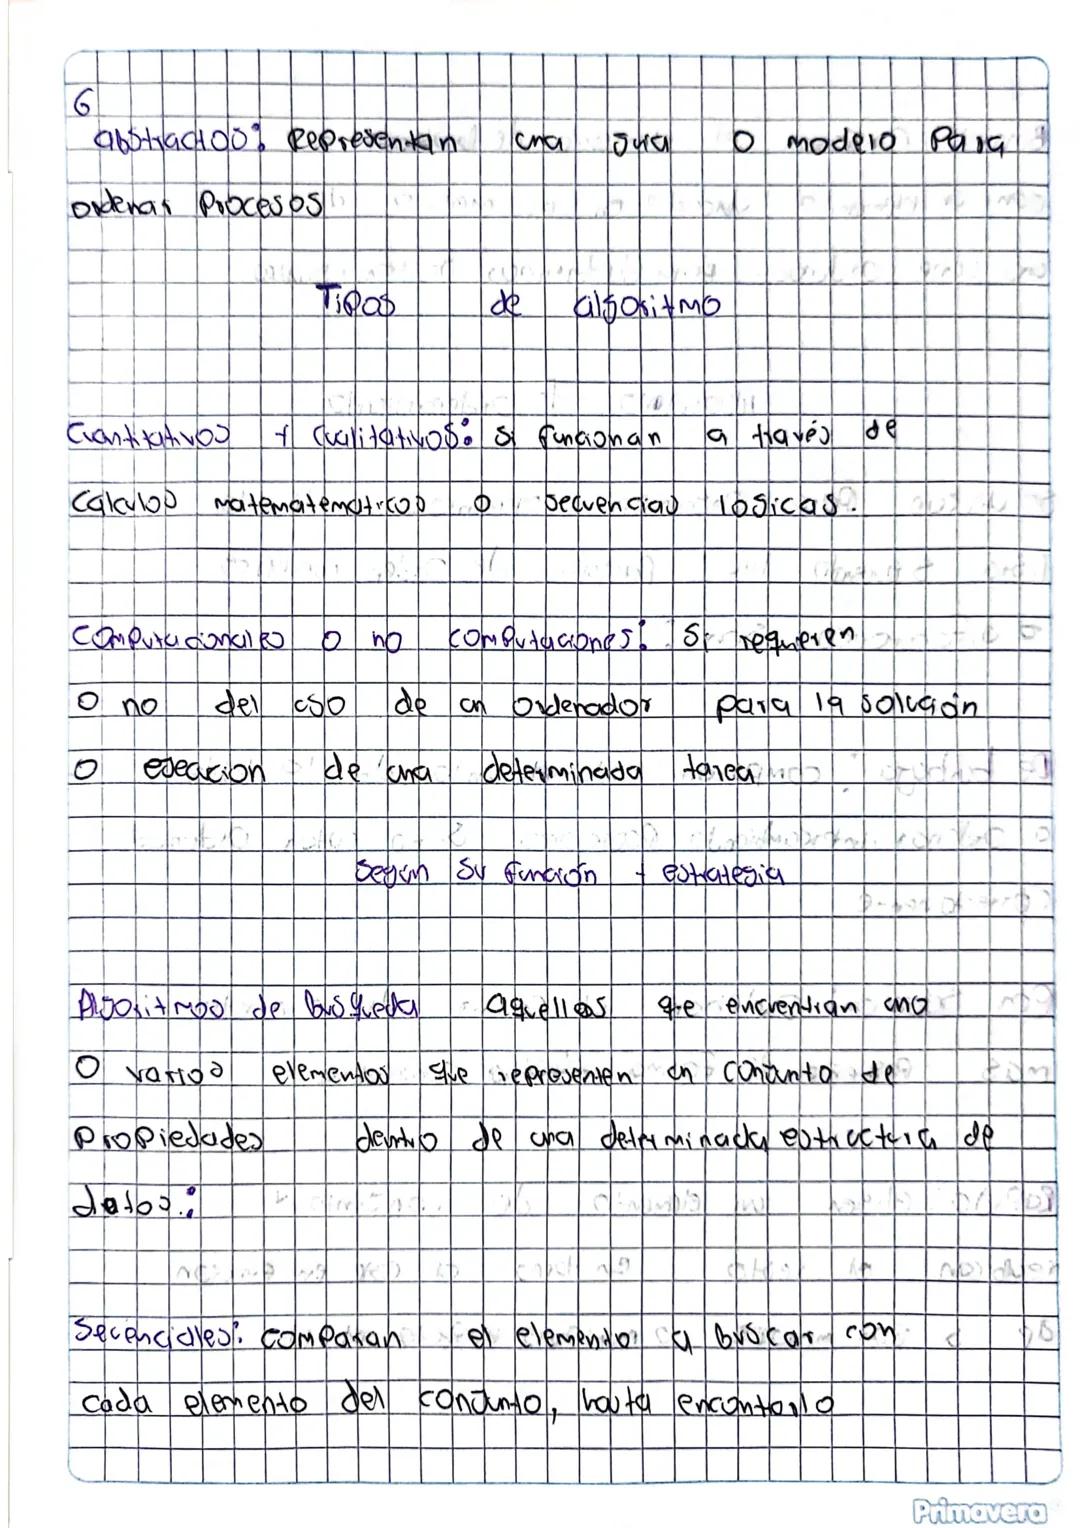 6
abstractos: Representan una guia o modelo Para
ordenar Procesos
Tipos de algoritmo
Cuantitativos y Cualitativos: si funcionan a través de
Calculos matematematicos o secuencias logicas.
Computacionales o no computaciones: Si requieren
o no del uso de un ordenador para la solución
o ejecucion de una determinada tarea
Según su función y estrategia
Algoritmos de busqueda aquellos que encuentran uno
o varios elementos que representen un conjunto de
Propiedades dentro de una determinada estructura de
datos:
Secenciales: comparan el elemento a buscar con
cada elemento del conjunto, hasta encontarlo
Primavera